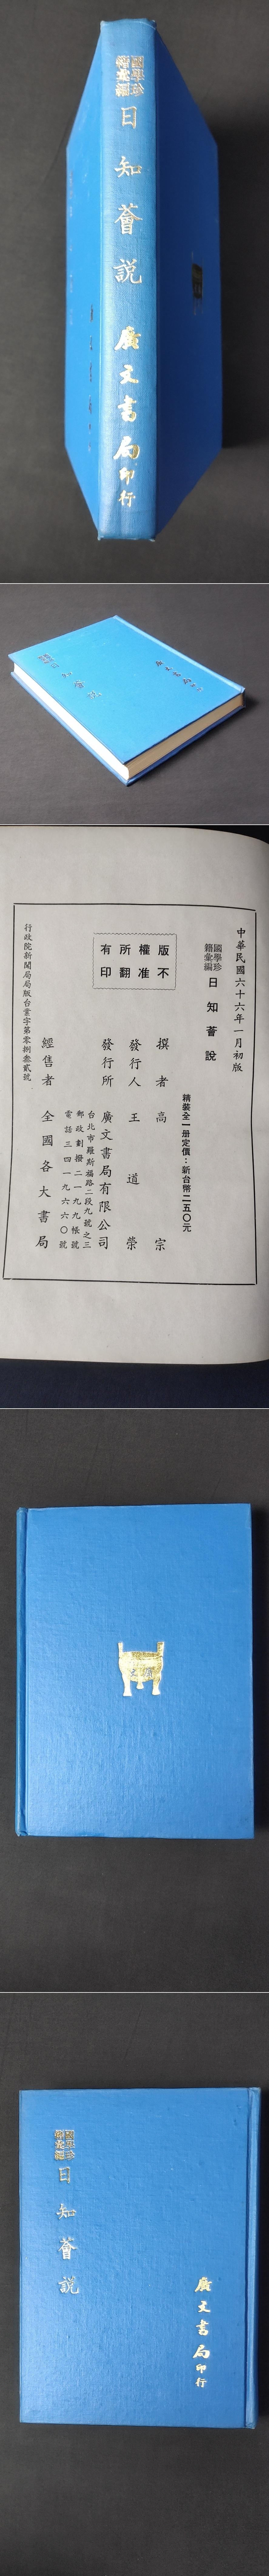 國學珍
籍彙編
日知薈說
廣文書局印行
中華民國六十六年一月初版
國學珍
籍彙編
日知薈說
精裝全一冊定價：新台幣二五〇元
撰者 高宗
發行人 王道榮
發行所 廣文書局有限公司
台北市羅斯福路二段九號之三
郵政劃撥二一九九帳號
電話三四一九六六〇號
經售者 全國各大書局
行政院新聞局局版台業字第零捌叁貳號
版權所有
不准翻印
國學珍
籍彙編
日知薈說
廣文書局印行